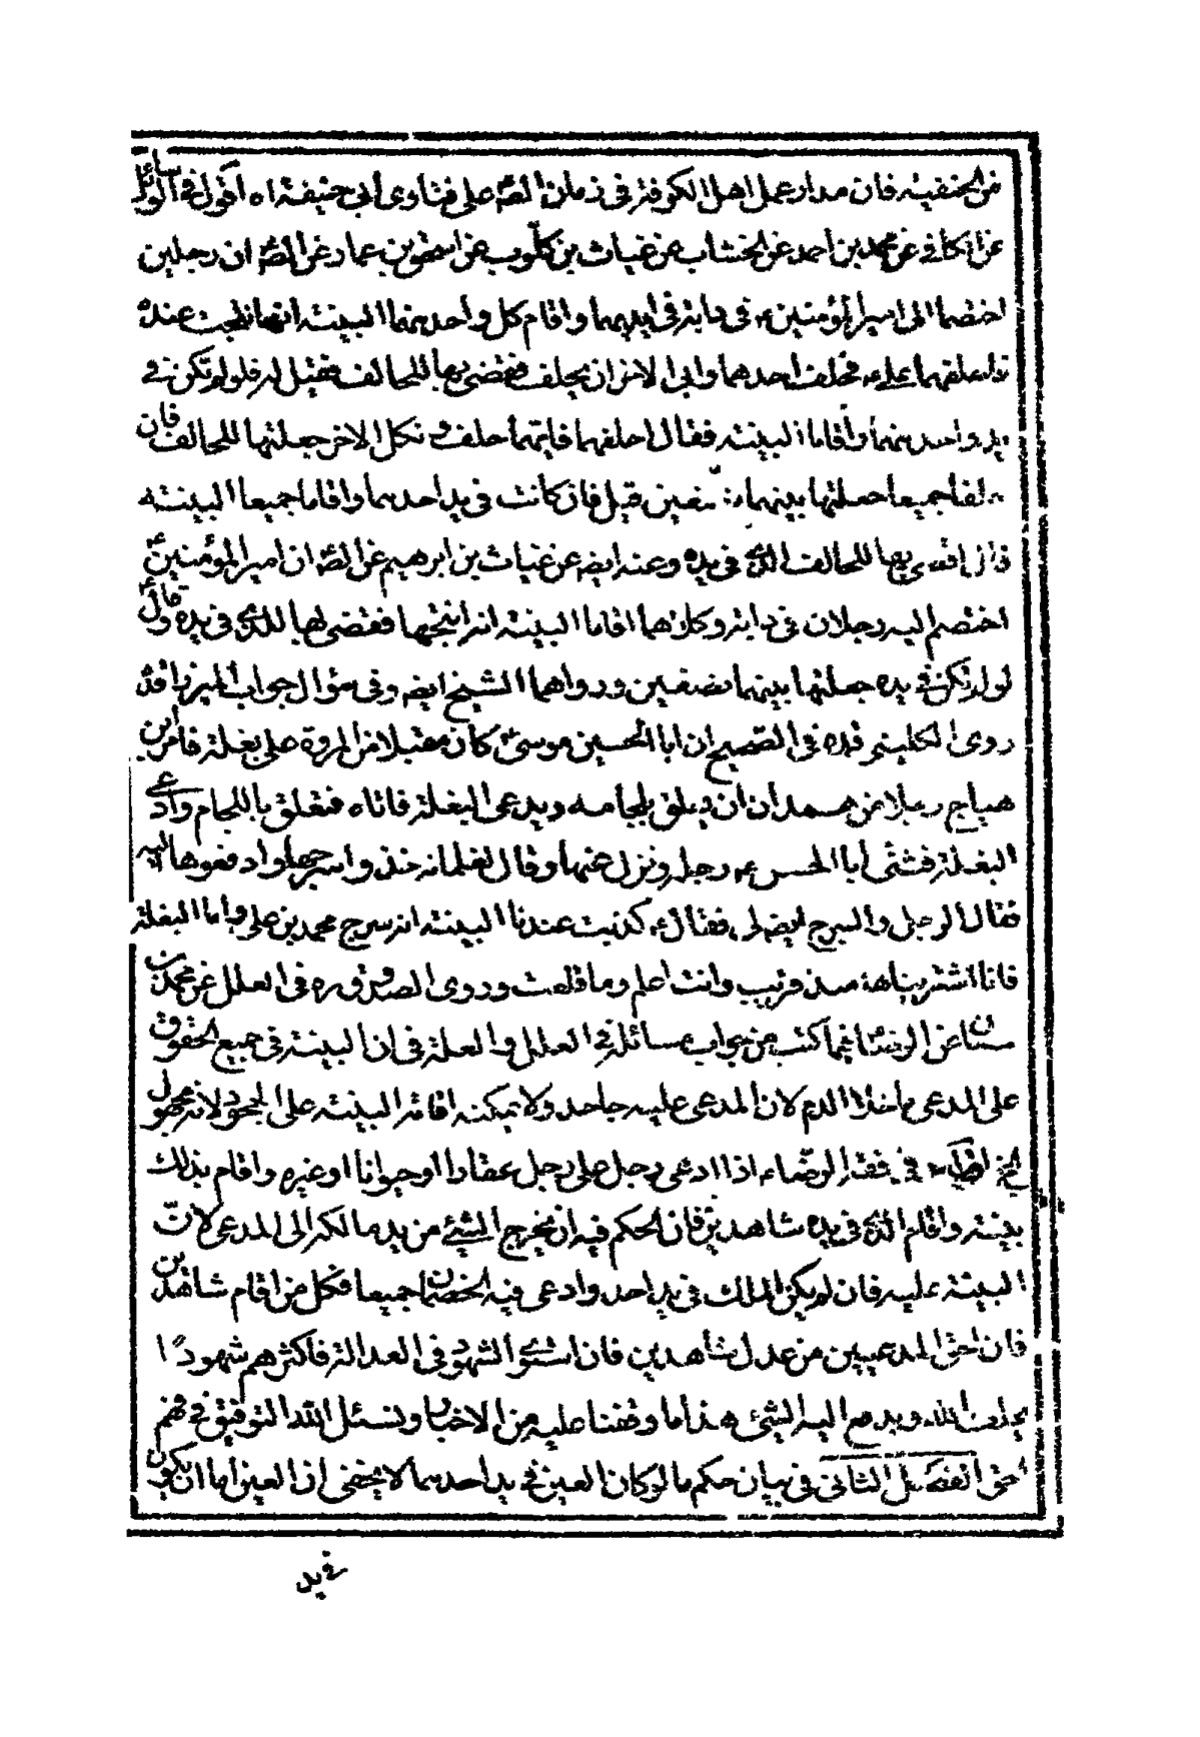 من الحنفية فان مدار عمل اهل الكوفة فى زمان الصّ على فتاوى ابى حنيفة اه اقول فى الوسائل
عن الكافى عن محمد بن احمد عن الخشاب عن غياث بن كلّوب عن اسحق بن عمار عن الصّ ان رجلين
اختصما الى امير المؤمنين ع فى دابة فى ايديهما واقام كل واحد منهما البينة انها نتجت عنده
فاحلفهما علىّ ع فحلف احدهما وابى الاخر ان يحلف فقضى بها للحالف فقيل له فلو لم تكن فى
يد واحد منهما واقاما البينة فقال احلفهما فايهما حلف و نكل الاخر جعلتها للحالف فان
حلفا جميعا جعلتها بينهما نصفين قيل فان كانت فى يد احدهما واقاما جميعا البينة
قال اقضى بها للحالف الذى فى يده وعنه ايضه عن غياث بن ابرهيم عن الصّ ان امير المؤمنين ع
اختصم اليه رجلان فى دابة وكلاهما اقاما البينة انه انتجها فقضى لها للذى فى يده وقال
لو لم تكن فى يده جعلتها بينهما نصفين ورواهما الشيخ ايضه وفى سؤال جواب الميرزا قده
روى الكلينى قده فى الصحيح ان ابا الحسين موسىٰ ع كان مقبلا من المروة على بغلة فامر ابن
هياج رجلا من همدان ان يعلق بلجامه ويدعى البغلة فاتاه فتعلق باللجام وادعى
البغلة فثنى ابا الحسن ع رجله ونزل عنها وقال لغلمانه خذوا سرجها وادفعوها اليه
فقال الرجل والسرج ايضه لى فقال ع كذبت عندنا البينة انه سرج محمد بن على واما البغلة
فانا اشتريناها منذ قريب وانت اعلم وما قلت وروى الصدوق ره فى العلل عن محمد بن
سنان عن الرضا ع فيما كتب من جواب مسائله فى العلل والعلة فى ان البينة فى جميع الحقوق
على المدعى ما خلا الدم لان المدعى عليه جاحد ولا يمكنه اقامة البينة على الجحود لانه مجهول
الخ فى فقه الرضا ع اذا ادعى رجل على رجل عقارا او حيوانا او غيره واقام بذلك
بينة واقام الذى فى يده شاهدين فان الحكم فيه ان يخرج الشيئ من يد مالكه الى المدعى لانّ
البينة عليه فان لم يكن الملك فى يد احد وادعى فيه الخصمان جميعا فكل من اقام شاهدين
فان احق المدعيين من عدل شاهدين فان استوى الشهود فى العدالة فاكثرهم شهودًا
يحلف بالله ويدفع اليه الشيئ هذا ما وقفنا عليه من الاخبار ونسئل الله التوفيق فى فهم
الفصل الثانى فى بيان حكم ما لو كان العين فى يد احدهما لا يخفى ان العين اما ان يكون
فى يد